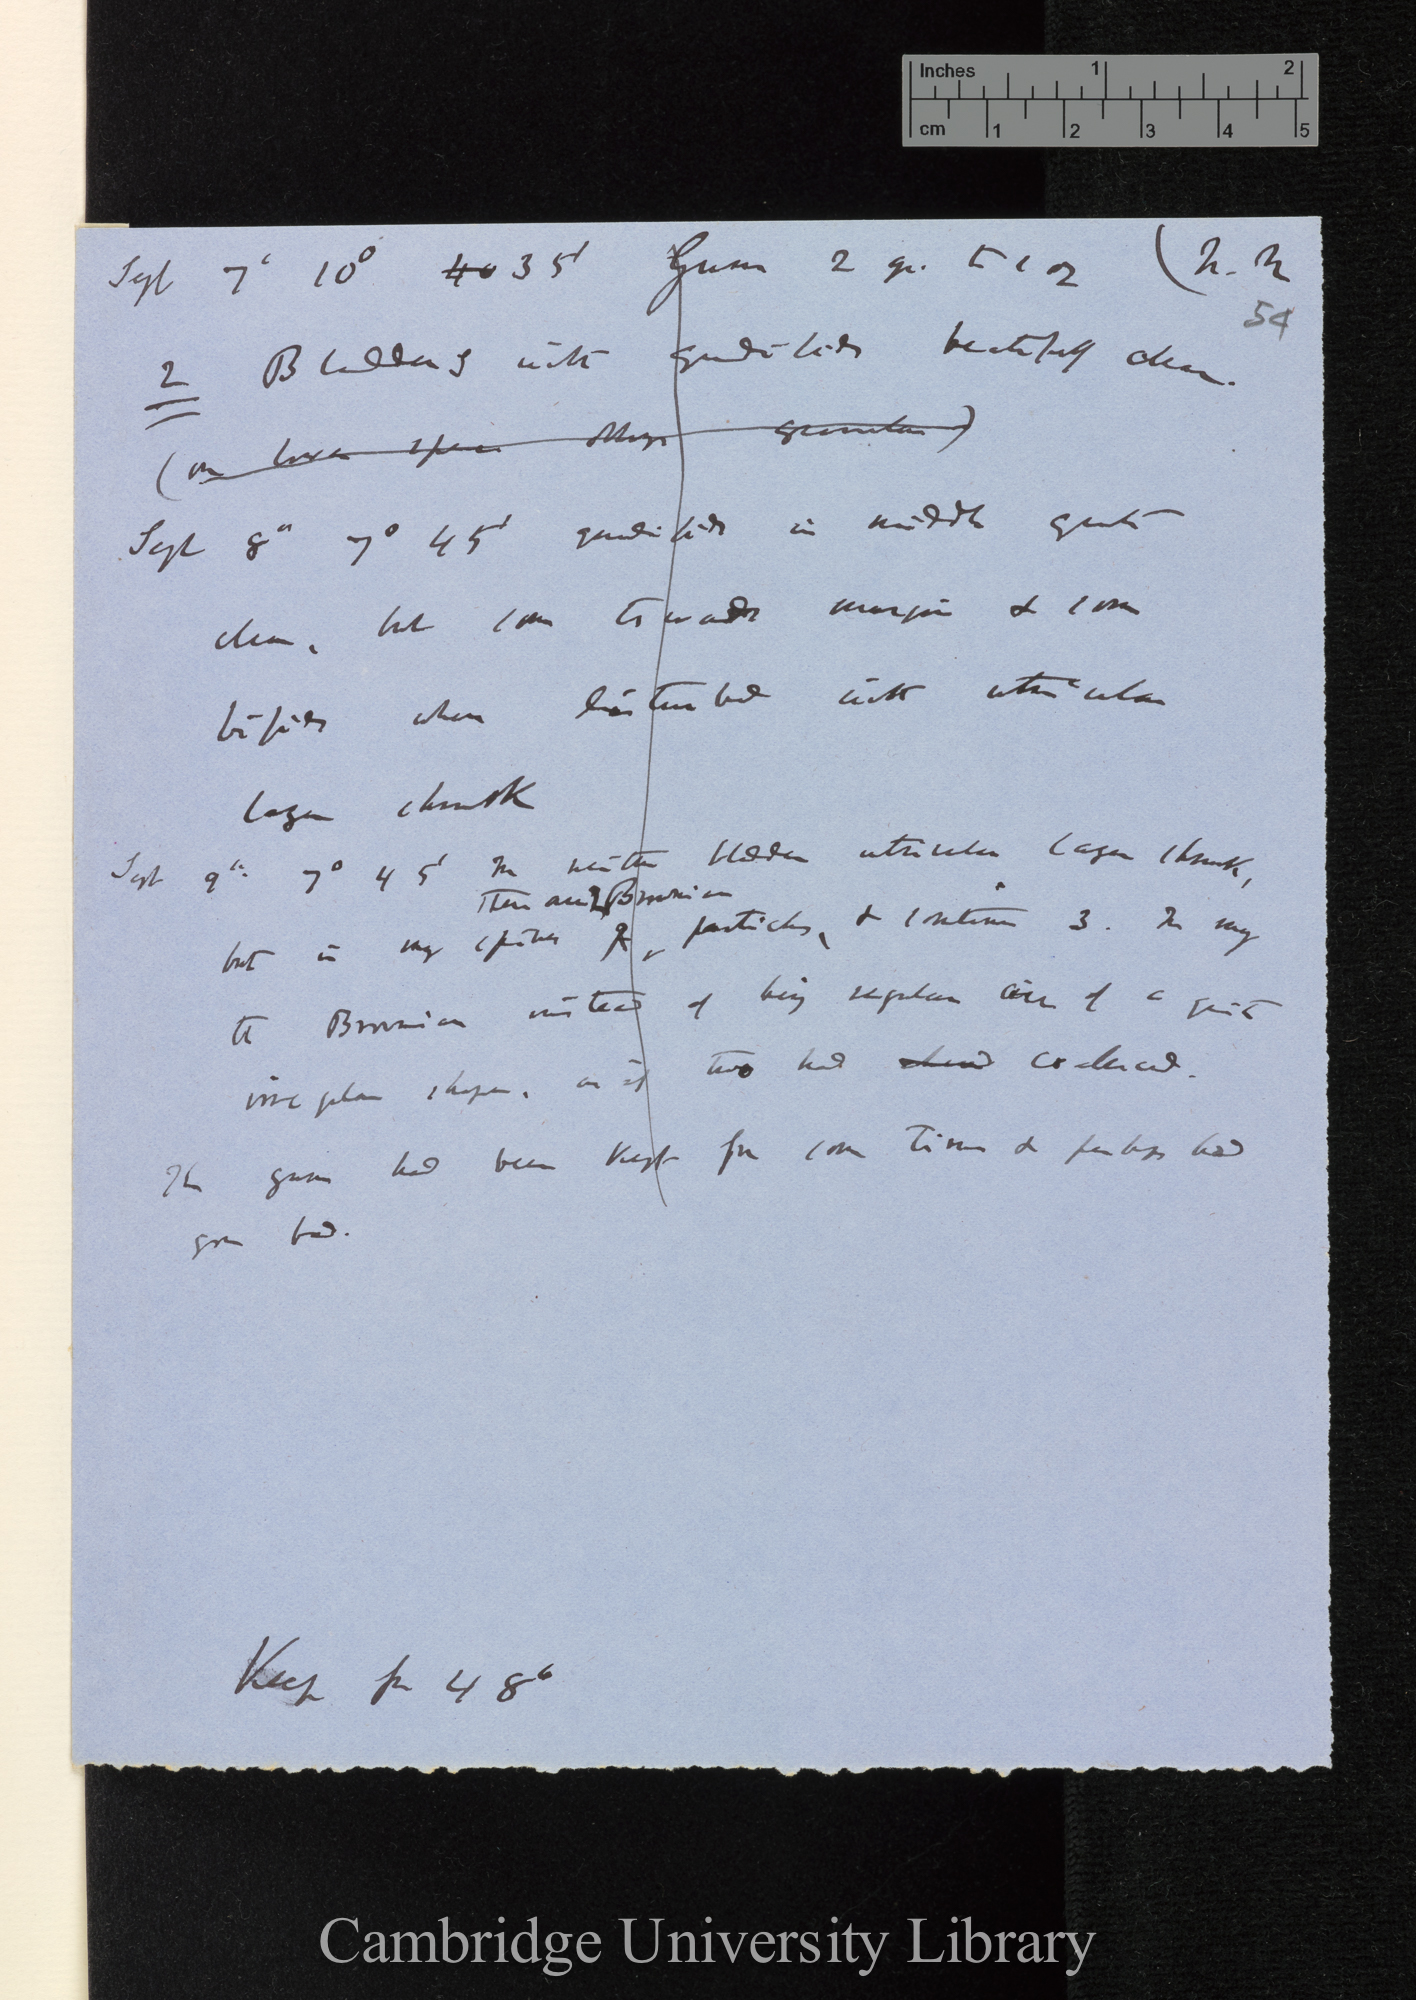 Inches 1 2
cm 1 2 3 4 5
Sept 7' 10° 40 35' Gum 2 gr. to 1 oz (N. N
54
2 Bladders with quadrifids beautifully clear.
(on lower granular)
Sept 8th 7° 45' quadrifids in middle quite
clear, but some towards margin & some
bifids when disturbed with utricular
layer shrunk
Sept 9th 7° 45' In neither bladder utricular layer shrunk,
there are 2 Brownian
but in my particles, & contains 3. In my
the Brownian instead of being regular are of a quite
irregular shape, as if two had coalesced.
The gum had been kept for some time & perhaps had
gone bad.
Keep for 48°
Cambridge University Library